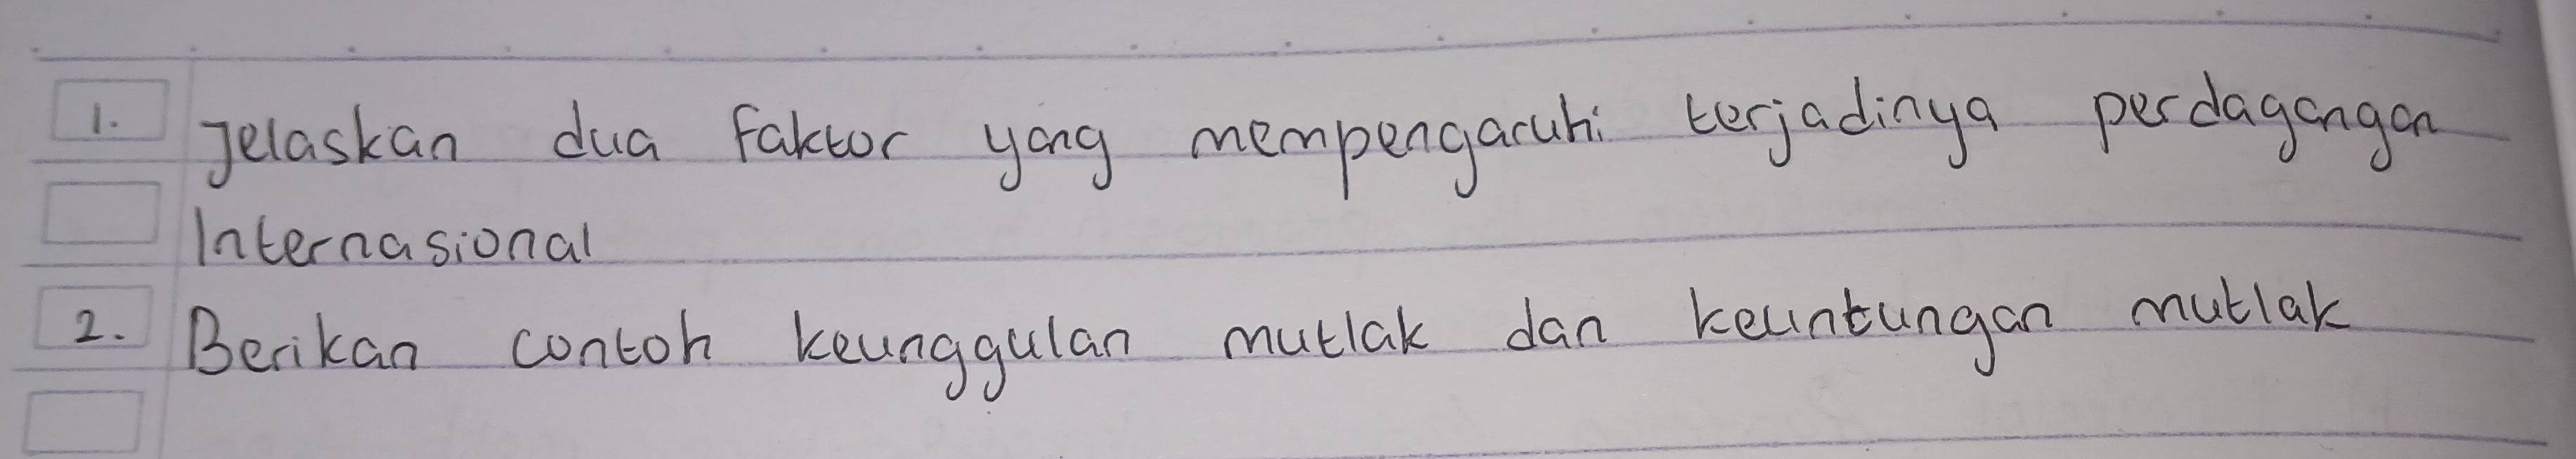 1. Jelaskan dua faktor yang mempengaruhi terjadinya perdagangan
Internasional
2. Berikan contoh keunggulan mutlak dan keuntungan mutlak